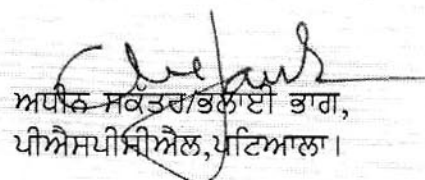 ਅਧੀਨ ਸਕੱਤਰ/ਭਲਾਈ ਭਾਗ,
ਪੀਐਸਪੀਸੀਐਲ,ਪਟਿਆਲਾ।